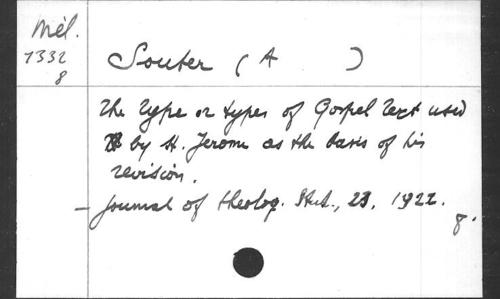 Mél.
7332
8
Souter (A )
The type or types of Gospel Text used
by St. Jerome as the basis of his
revision.
- Journal of theolog. Stud., 23, 1922.
8.